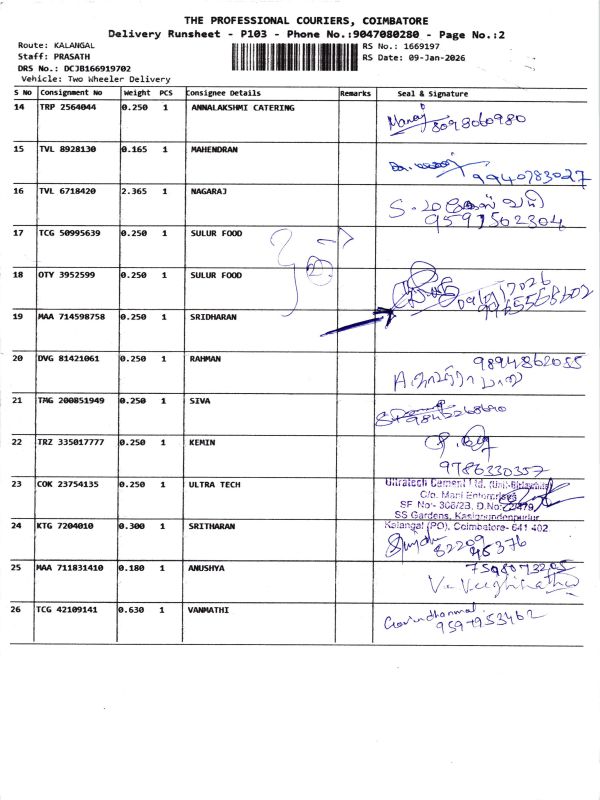 THE PROFESSIONAL COURIERS, COIMBATORE
Delivery Runsheet - P103 - Phone No.:9047080280 - Page No.:2
Route: KALANGAL
Staff: PRASATH
DRS No.: DCJB166919702
Vehicle: Two Wheeler Delivery
RS No.: 1669197
RS Date: 09-Jan-2026
S No Consignment No Weight PCS Consignee Details Remarks Seal & Signature
14 TRP 2564044 0.250 1 ANNALAKSHMI CATERING
Manoj 8098060980
15 TVL 8928130 0.165 1 MAHENDRAN
9940783027
16 TVL 6718420 2.365 1 NAGARAJ
9597502304
17 TCG 50995639 0.250 1 SULUR FOOD
18 OTY 3952599 0.250 1 SULUR FOOD
19 MAA 714598758 0.250 1 SRIDHARAN
20 DVG 81421061 0.250 1 RAHMAN
9894862055
21 TMG 200851949 0.250 1 SIVA
22 TRZ 335017777 0.250 1 KEMIN
9786330357
23 COK 23754135 0.250 1 ULTRA TECH
Ultratech Cement Ltd.
C/o. Mani Enterprises
SF No:- 308/2B, D.No:
SS Gardens,
Kalangal (PO), Coimbatore- 641 402
24 KTG 7204010 0.300 1 SRITHARAN
82209
45376
25 MAA 711831410 0.180 1 ANUSHYA
26 TCG 42109141 0.630 1 VANMATHI
Govindhammal
9597953462